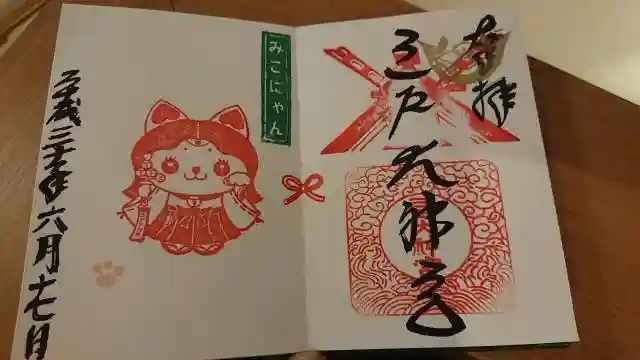 奉拝
三戸大神宮
みこにゃん
平成三十年六月十七日